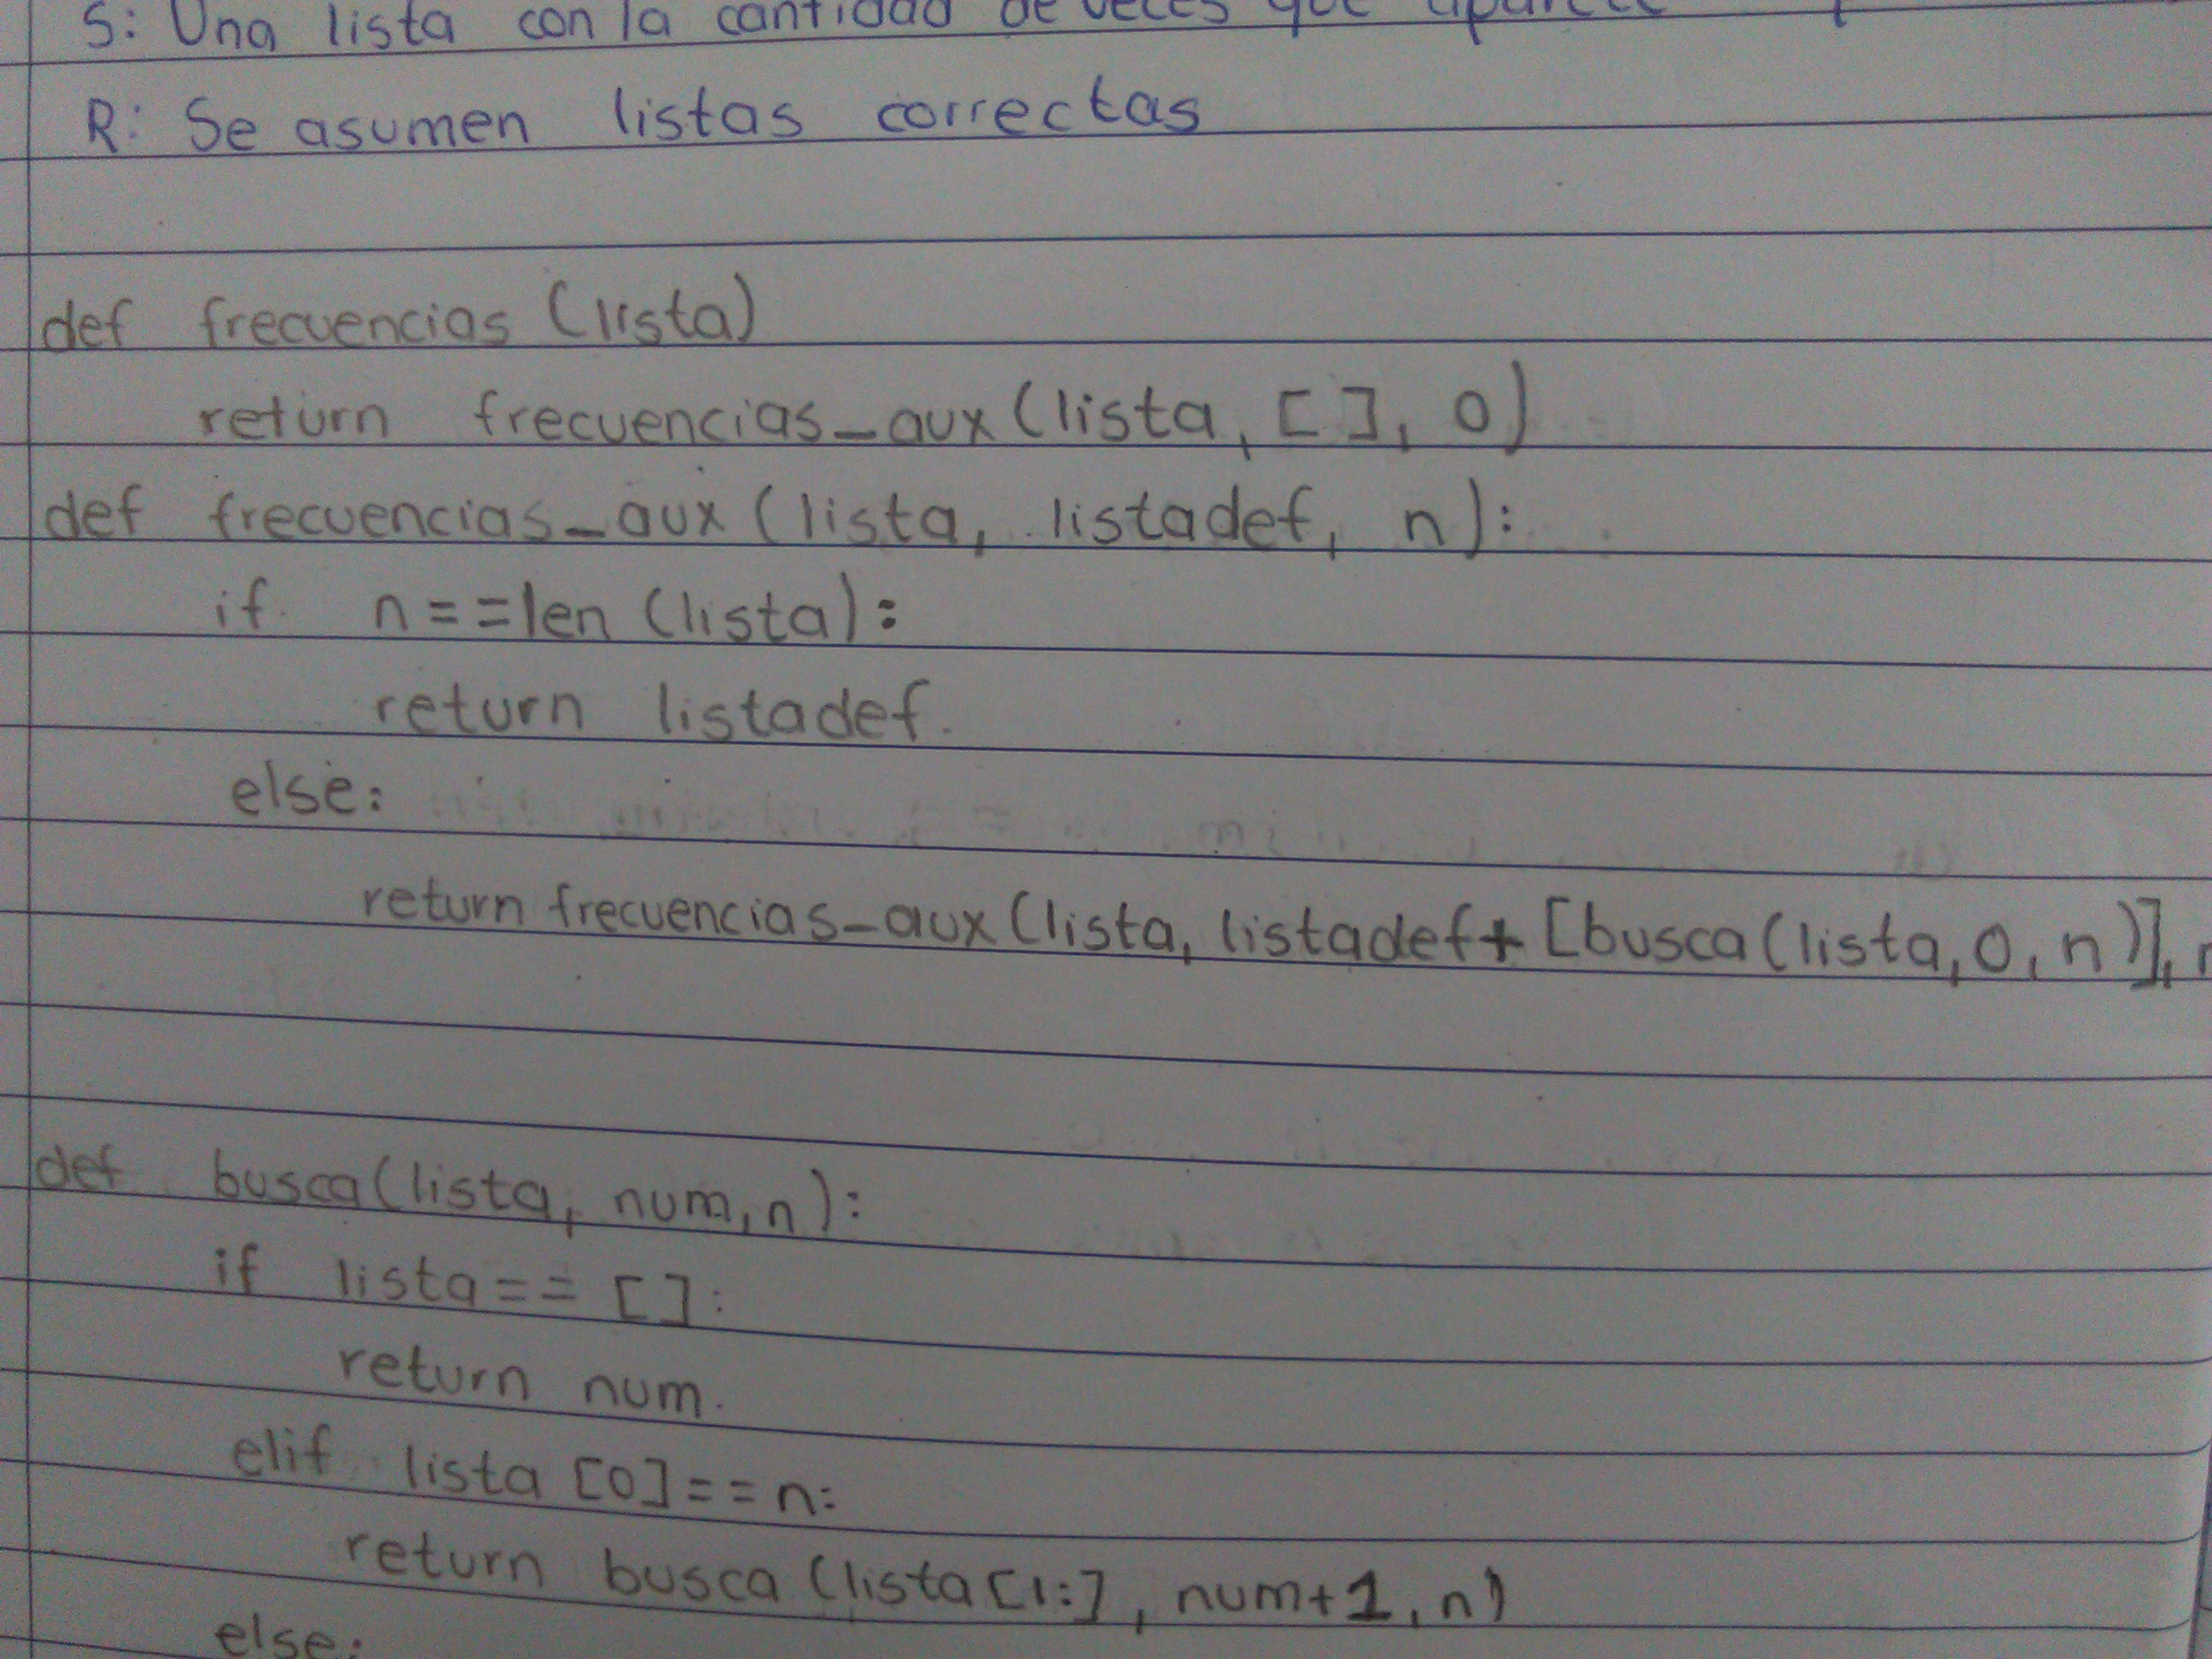 S: Una lista con la cantidad de veces que aparece
R: Se asumen listas correctas
def frecuencias (lista)
return frecuencias_aux (lista, [ ], 0)
def frecuencias_aux (lista, listadef, n):
if n==len (lista):
return listadef.
else:
return frecuencias_aux (lista, listadef+ [busca (lista, 0, n)],
def busca (lista, num, n):
if lista == [ ]:
return num.
elif lista [0]==n:
return busca (lista [1:], num+1, n)
else: